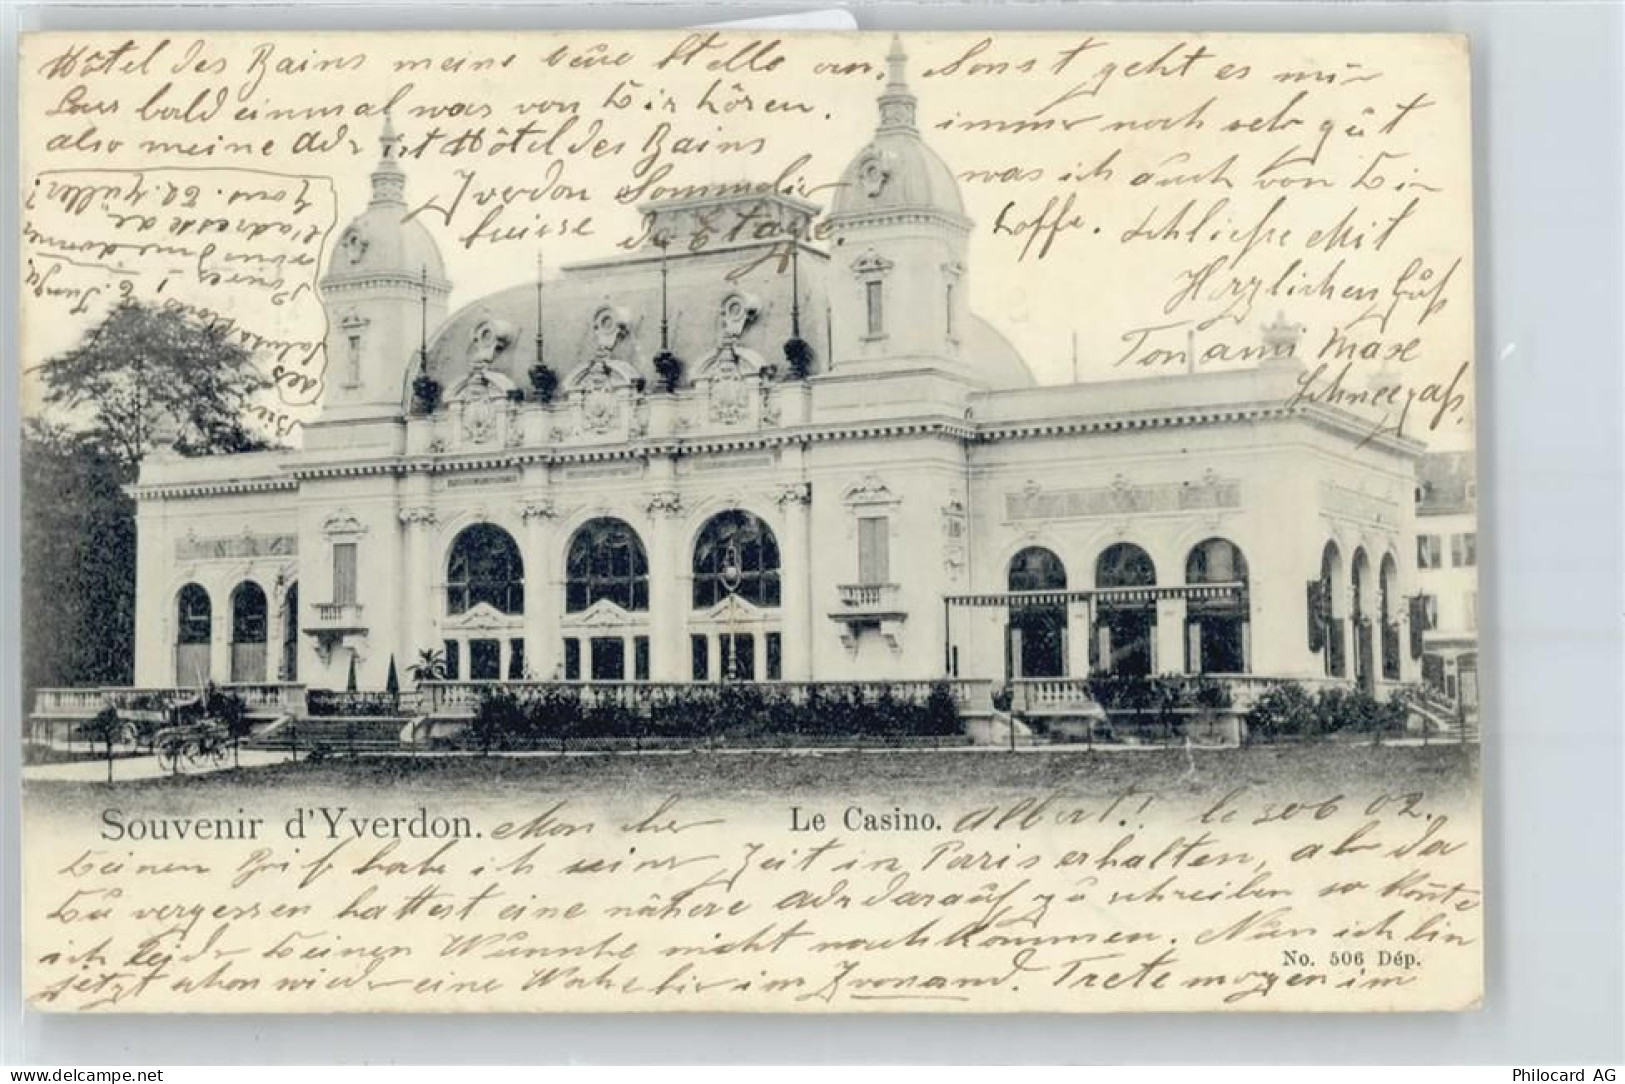 Hôtel des Bains meine neue Stelle an. Sonst geht es mir
Lass bald einmal was von Dir hören. immer noch sehr gut
also meine Adr ist Hôtel des Bains was ich auch von Dir
Yverdon hoffe. Schließe Mit
Suisse 2 Etage. Herzlichen Gruß
Ton ami Max
Schneegaß.
l'adresse de
Mons. Ed. Müller?
Souvenir d'Yverdon. Mon cher Le Casino. Albert! le 30 6 02.
Deinen Brief habe ich seiner Zeit in Paris erhalten, als da
Du vergessen hattest eine nähere Adr darauf zu schreiben so konnte
ich leider Deinen Wunsche nicht nachkommen. Nun ich bin
jetzt schon wieder eine Woche hier im Yvonand. Trete morgen im
No. 506 Dép.
Philocard AG